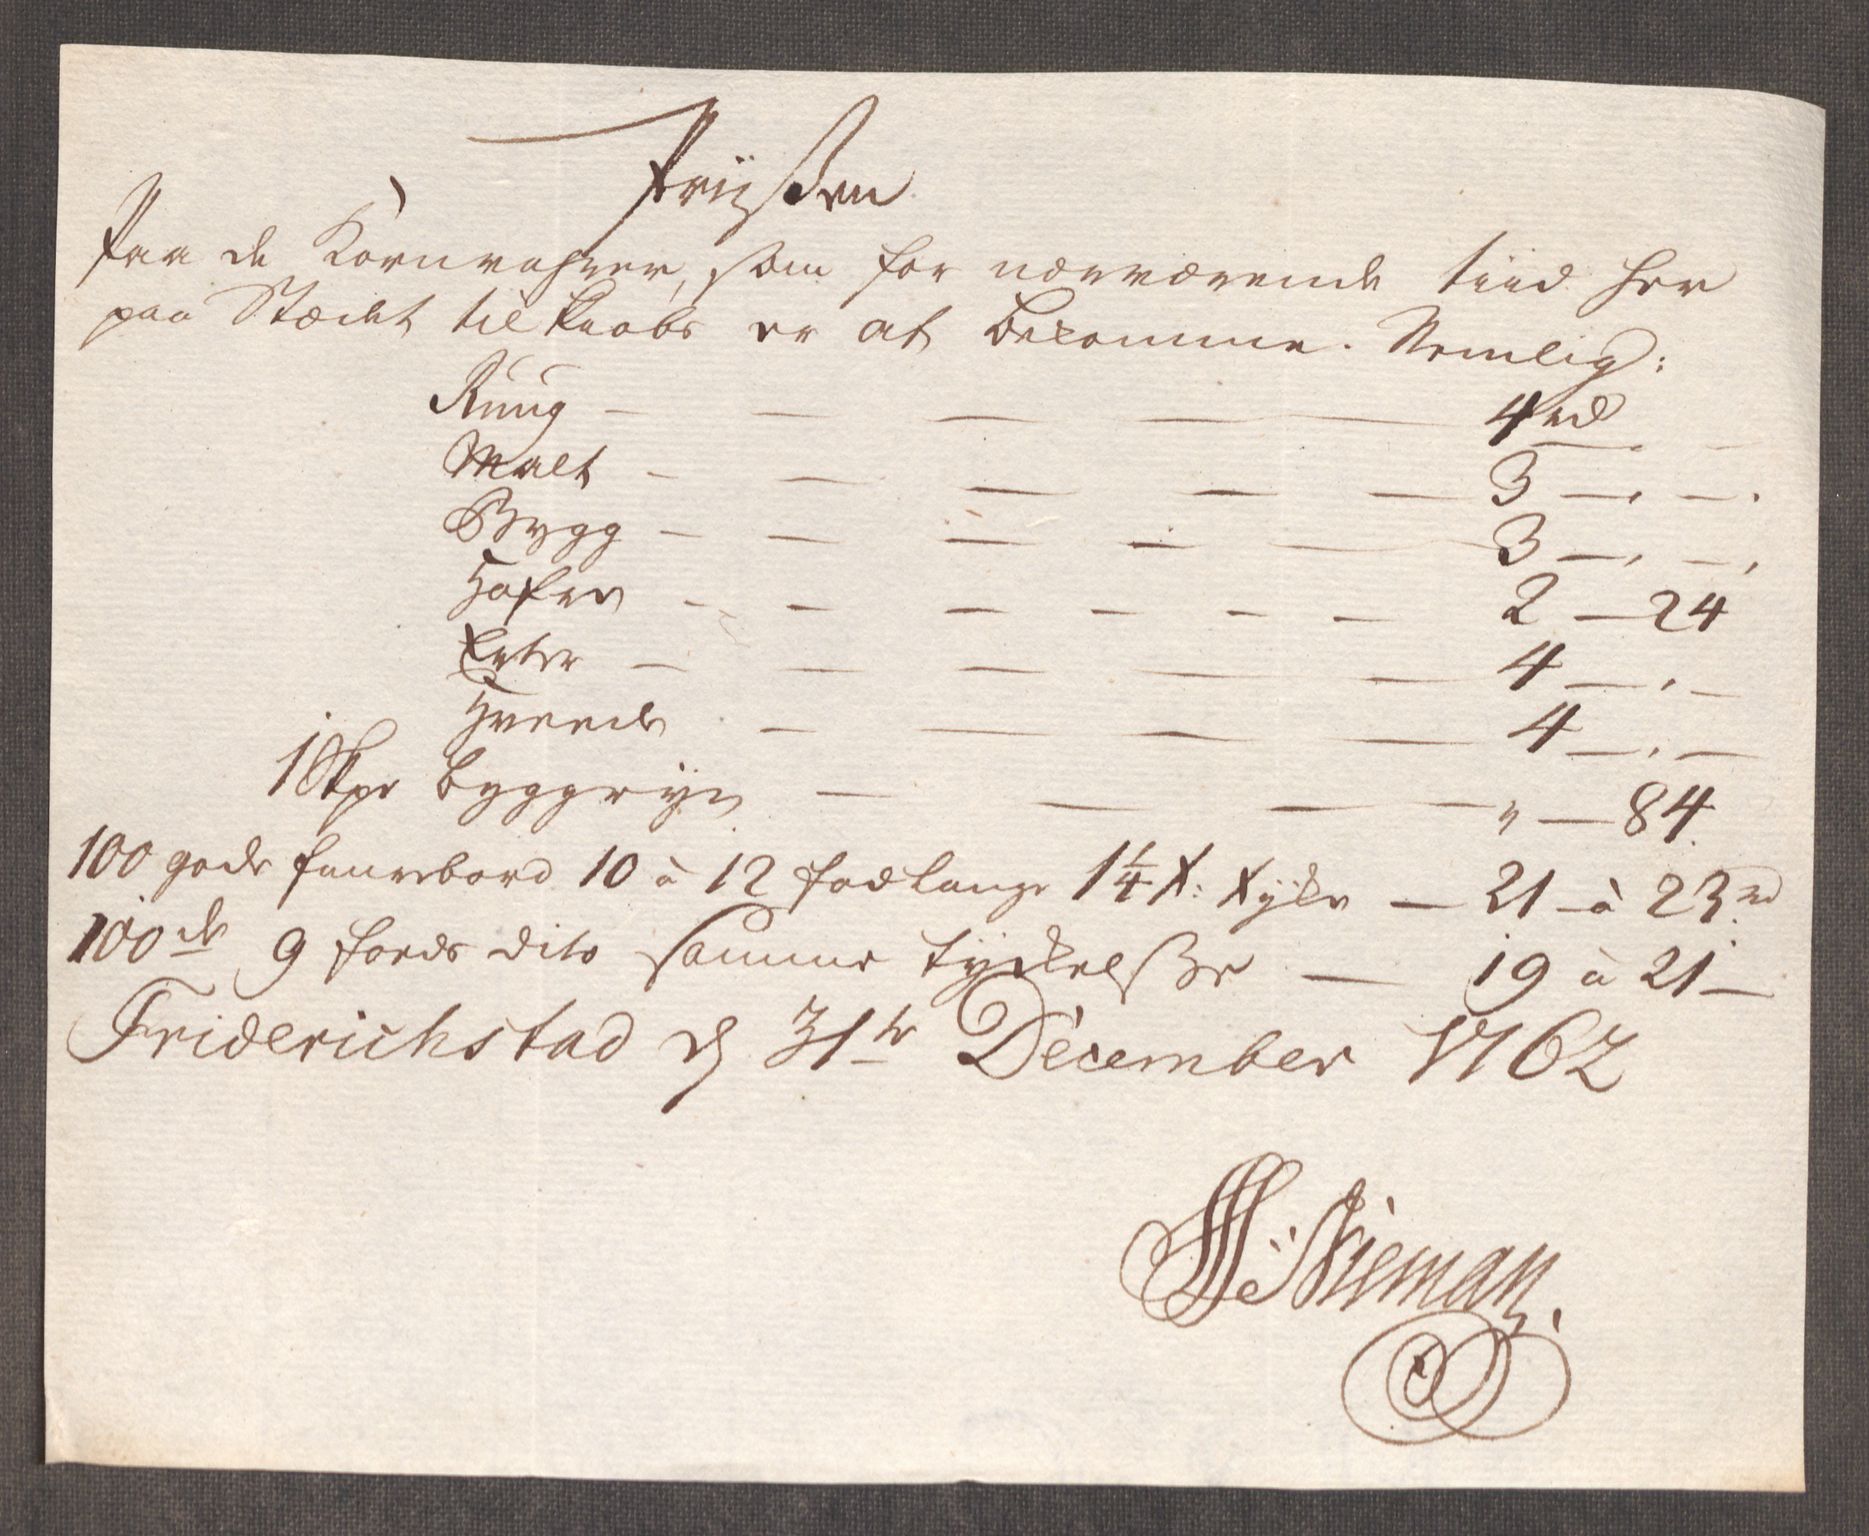 Priisen
Paa de Kornvahrer, som for nærværende tiid her
paa Stædet til kiøbs er at bekomme. Nemlig:
Ruug — — — — — 4 rd — . —
Malt — — — — — 3 — . — .
Bygg — — — — — 3 — . — .
Hafre — — — — — — 2 — 24
Erter — — — — — 4 — . —
Hveede — — — — 4 — . —
1 Skpe byggryn — — — — " — 84
100 gode furrebord 10 à 12 fod lange 1 1/4 t: tykke — 21 à 23 rd
100 de 9 foeds dito samme tyckelsse — 19 à 21 —
Friderichstad d 31te December 1762
Nieman.